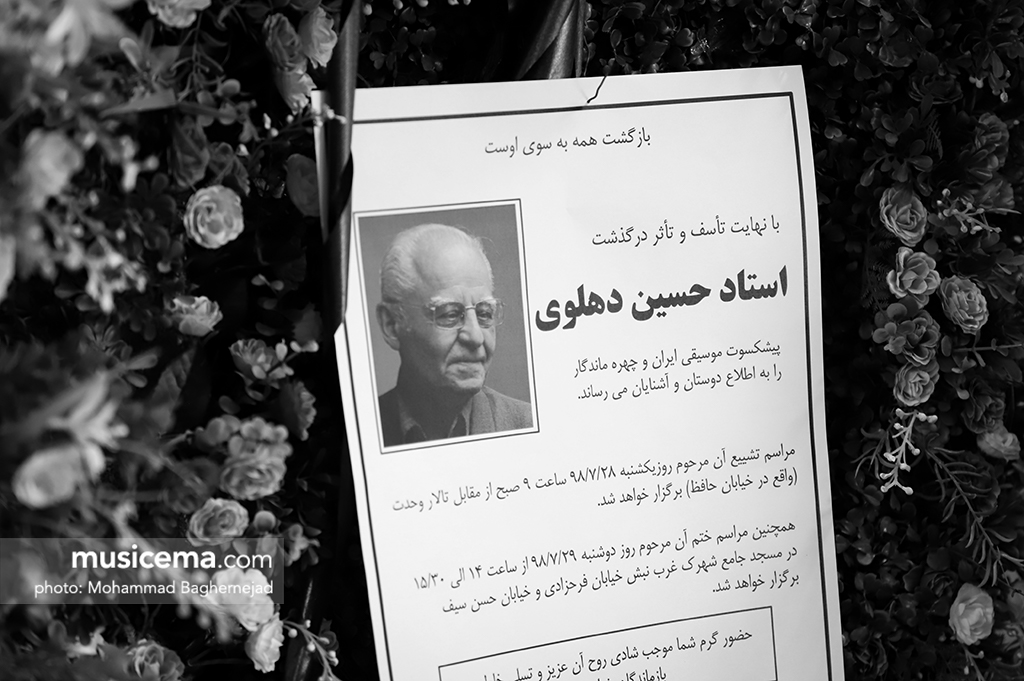 بازگشت همه به سوی اوست
با نهایت تأسف و تأثر درگذشت
استاد حسین دهلوی
پیشکسوت موسیقی ایران و چهره ماندگار
را به اطلاع دوستان و آشنایان می رساند.
مراسم تشییع آن مرحوم روزیکشنبه ۹۸/۷/۲۸ ساعت ۹ صبح از مقابل تالار وحدت
(واقع در خیابان حافظ) برگزار خواهد شد.
همچنین مراسم ختم آن مرحوم روز دوشنبه ۹۸/۷/۲۹ از ساعت ۱۴ الی ۱۵/۳۰
در مسجد جامع شهرک غرب نبش خیابان فرحزادی و خیابان حسن سیف
برگزار خواهد شد.
حضور گرم شما موجب شادی روح آن عزیز و تسلی
musicema.com
photo: Mohammad Baghernejad